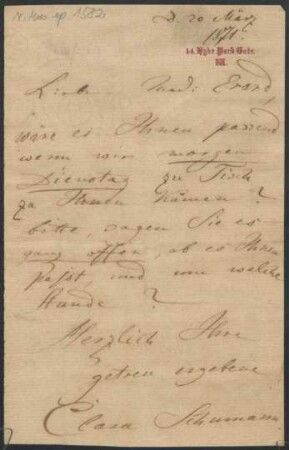 N. Mus. ep. 1582
d. 20 März
1871.
14. Hyde Park Gate.
Liebe Mad: Erard,
wäre es Ihnen passend
wenn wir morgen
Dienstag zu Tisch
zu Ihnen kämen?
bitte, sagen Sie es
ganz offen, ob es Ihnen
paßt, und um welche
Stunde?
Herzlich Ihre
getreu ergebene
Clara Schumann